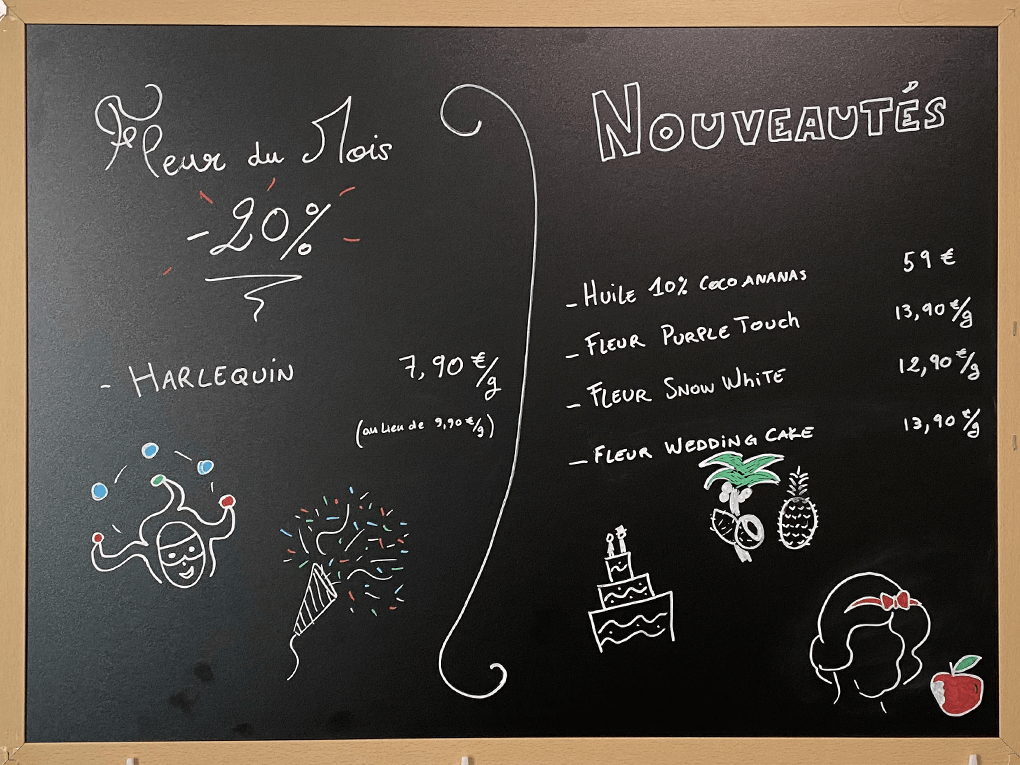 Fleur du Mois
-20%
- HARLEQUIN 7,90 €/g
(au lieu de 9,90 €/g)
NOUVEAUTÉS
- HUILE 10% COCO ANANAS 59 €
- FLEUR PURPLE TOUCH 13,90 €/g
- FLEUR SNOW WHITE 12,90 €/g
- FLEUR WEDDING CAKE 13,90 €/g